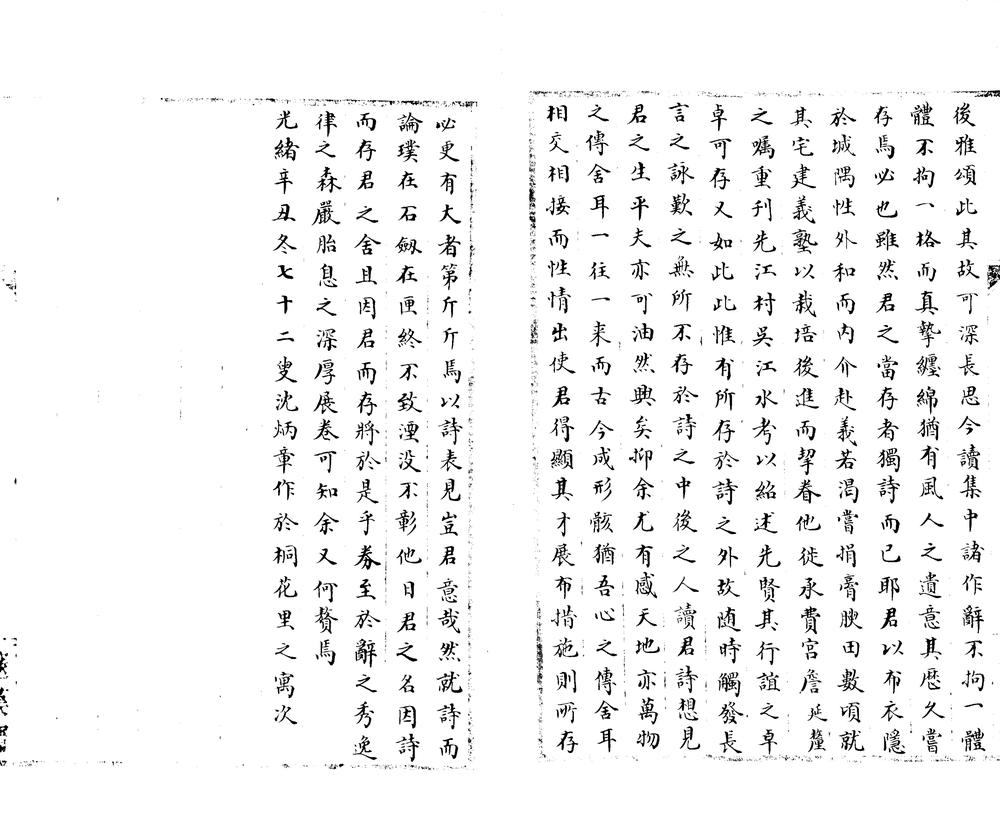 後雅頌此其故可深長思今讀集中諸作辭不拘一體
體不拘一格而真摯纏綿猶有風人之遺意其歷久嘗
存焉必也雖然君之當存者獨詩而已耶君以布衣隱
於城隅性外和而內介赴義若渴嘗捐膏腴田數頃就
其宅建義塾以栽培後進而挈眷他徙承費宮詹延釐
之囑重刊先江村吳江水考以紹述先賢其行誼之卓
卓可存又如此此惟有所存於詩之外故随時觸發長
言之詠歎之無所不存於詩之中後之人讀君詩想見
君之生平夫亦可油然興矣抑余尤有感天地亦萬物
之傳舍耳一往一来而古今成形骸猶吾心之傳舍耳
相交相接而性情出使君得顯其才展布措施則所存
必更有大者第斤斤焉以詩表見豈君意哉然就詩而
論璞在石劒在匣終不致湮没不彰他日君之名因詩
而存君之舍且因君而存將於是乎券至於辭之秀逸
律之森嚴胎息之深厚展卷可知余又何贅焉
光緒辛丑冬七十二叟沈炳章作於桐花里之寓次